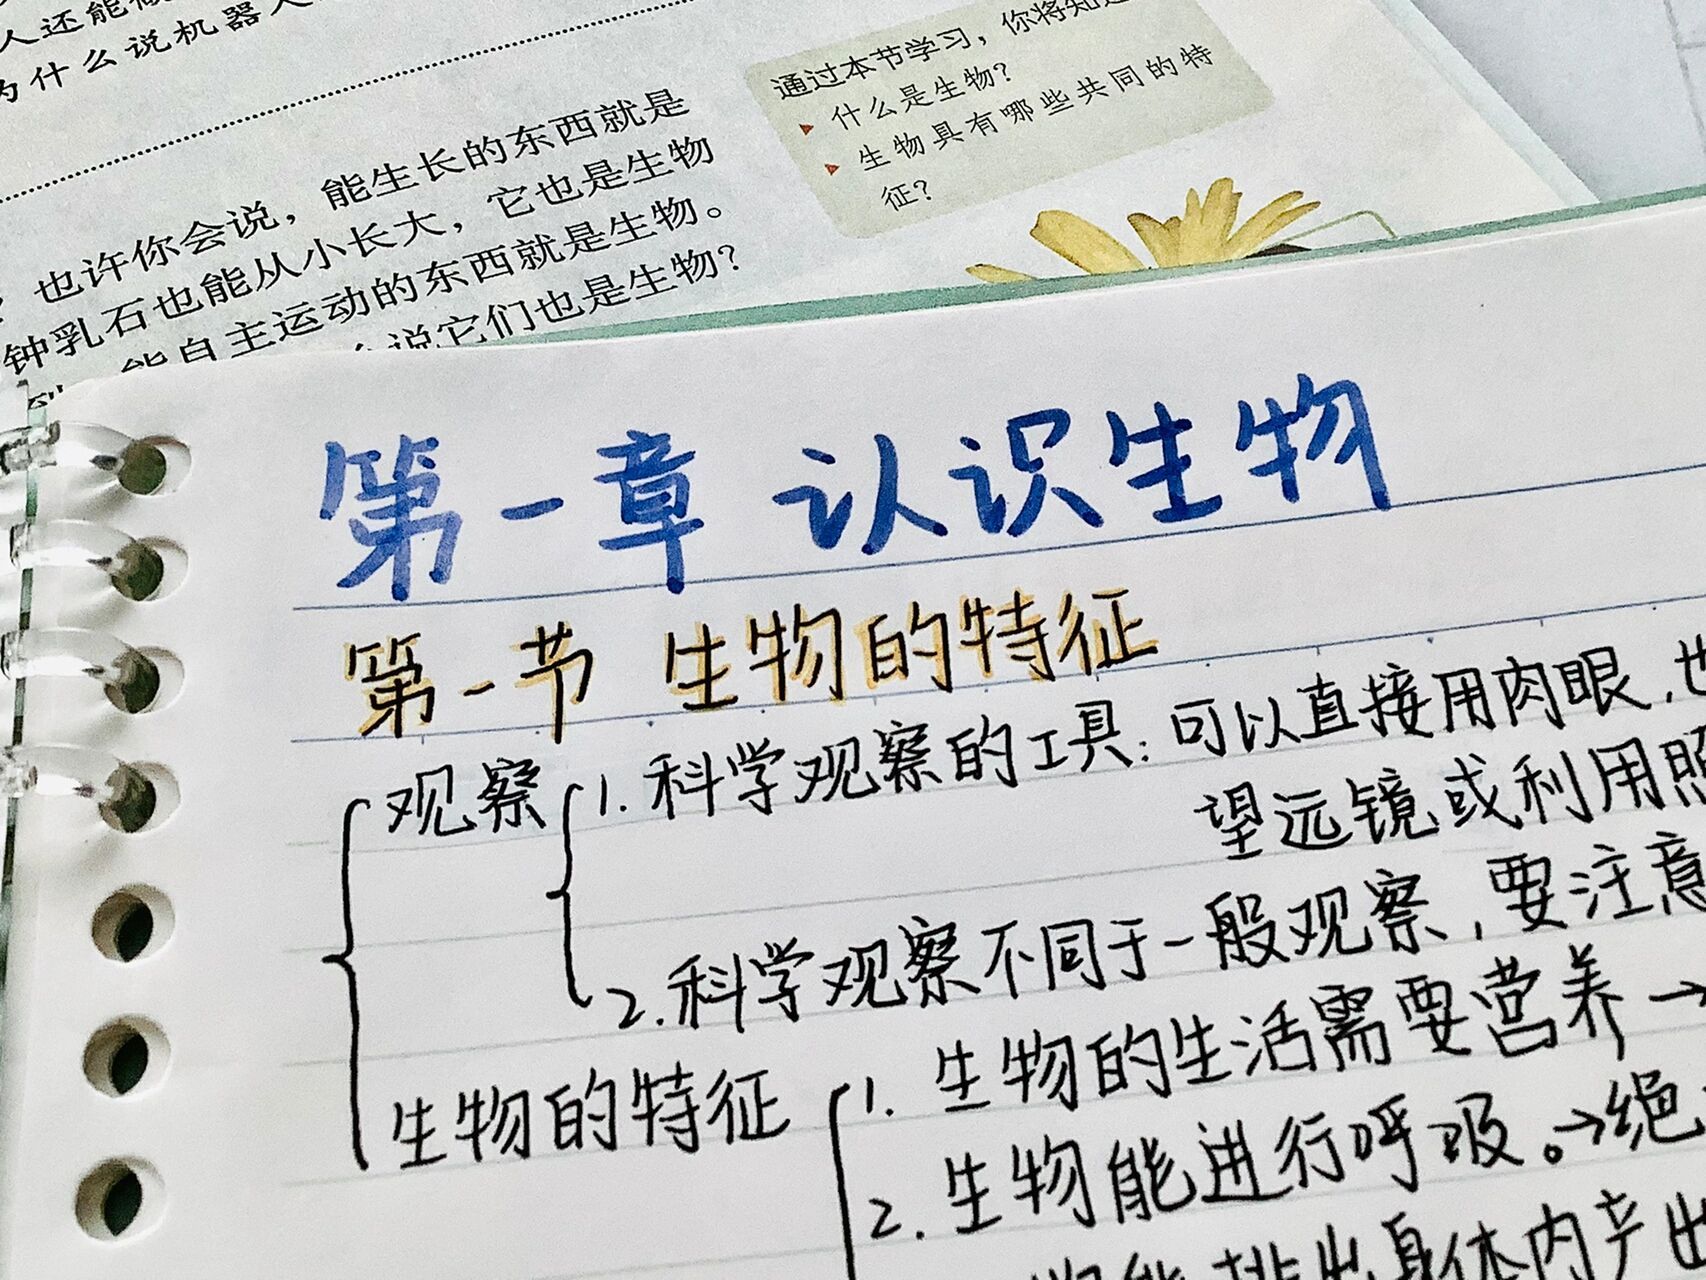 人还能
为什么说机器人
也许你会说，能生长的东西就是
钟乳石也能从小长大，它也是生物
能自主运动的东西就是生物。
说它们也是生物？
通过本节学习，你将知道
什么是生物？
生物具有哪些共同的特
征？
第一章 认识生物
第一节 生物的特征
观察 1. 科学观察的工具：可以直接用肉眼，也
望远镜或利用照
2. 科学观察不同于一般观察，要注意
生物的特征 1. 生物的生活需要营养→
2. 生物能进行呼吸。→绝
物能排出身体内产出